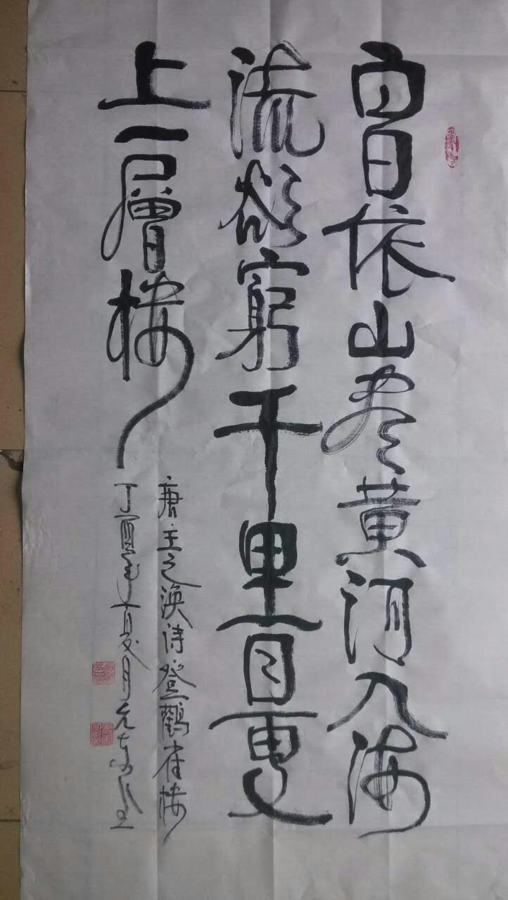 白日依山尽黄河入海
流欲穷千里目更
上一層楼
唐王之涣诗登鹳雀楼
丁酉年夏月